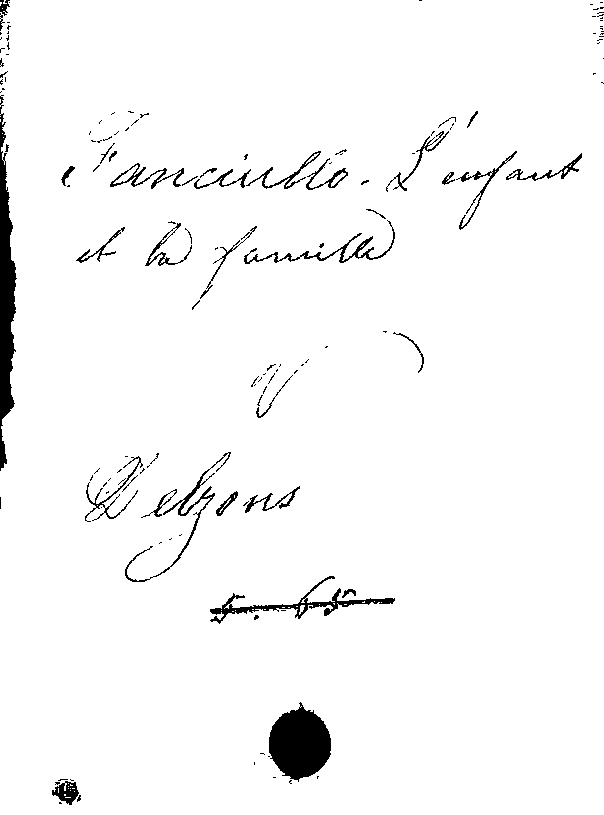 Fanciullo. L'enfant
et la famille
V
Delzons
5. 65